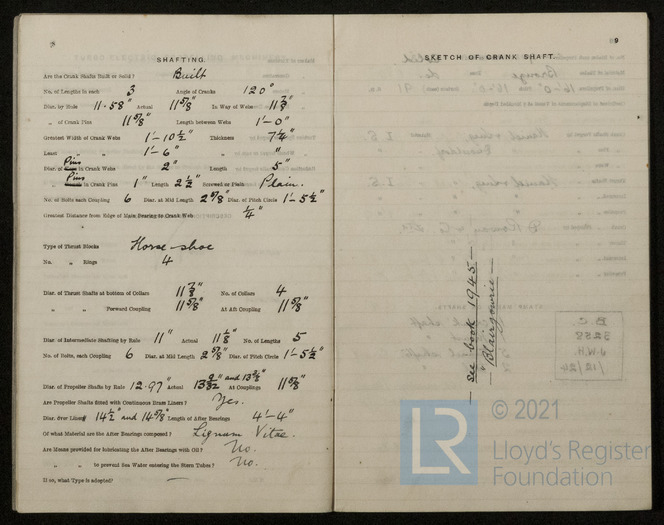 8
SHAFTING.
Are the Crank Shafts Built or Solid? Built
No. of Lengths in each 3 Angle of Cranks 120°
Diar. by Rule 11.58" Actual 11 5/8" In Way of Webs 11 7/8"
" of Crank Pins 11 5/8" Length between Webs 1'-0"
Greatest Width of Crank Webs 1'-10 1/2" Thickness 7 1/4"
Least " " 1'-6" " "
Diar. of Pins in Crank Webs 2" Length 5"
" Pins in Crank Pins 1" Length 2 1/2" Screwed or Plain Plain.
No. of Bolts each Coupling 6 Diar. at Mid Length 2 5/8" Diar. of Pitch Circle 1'-5 1/2"
Greatest Distance from Edge of Main Bearing to Crank Web 1/4"
Type of Thrust Blocks Horse-shoe
No. " Rings 4
Diar. of Thrust Shafts at bottom of Collars 11 7/8" No. of Collars 4
" " Forward Coupling 11 5/8" At Aft Coupling 11 5/8"
Diar. of Intermediate Shafting by Rule 11" Actual No. of Lengths 5
No. of Bolts, each Coupling 6 Diar. at Mid Length 2 5/8" Diar. of Pitch Circle 1'-5 1/2"
Diar. of Propeller Shafts by Rule 12.97" Actual and At Couplings 11 5/8"
Are Propeller Shafts fitted with Continuous Brass Liners? Yes.
Diar. over Liners 14 1/2" and 14 5/8" Length of After Bearings 4'-4"
Of what Material are the After Bearings composed? Lignum Vitae.
Are Means provided for lubricating the After Bearings with Oil? No.
" " to prevent Sea Water entering the Stern Tubes? No.
If so, what Type is adopted?
9
SKETCH OF CRANK SHAFT.
— see book 1945 —
— "Blairgowrie" —
© 2021
LR
Lloyd's Register
Foundation